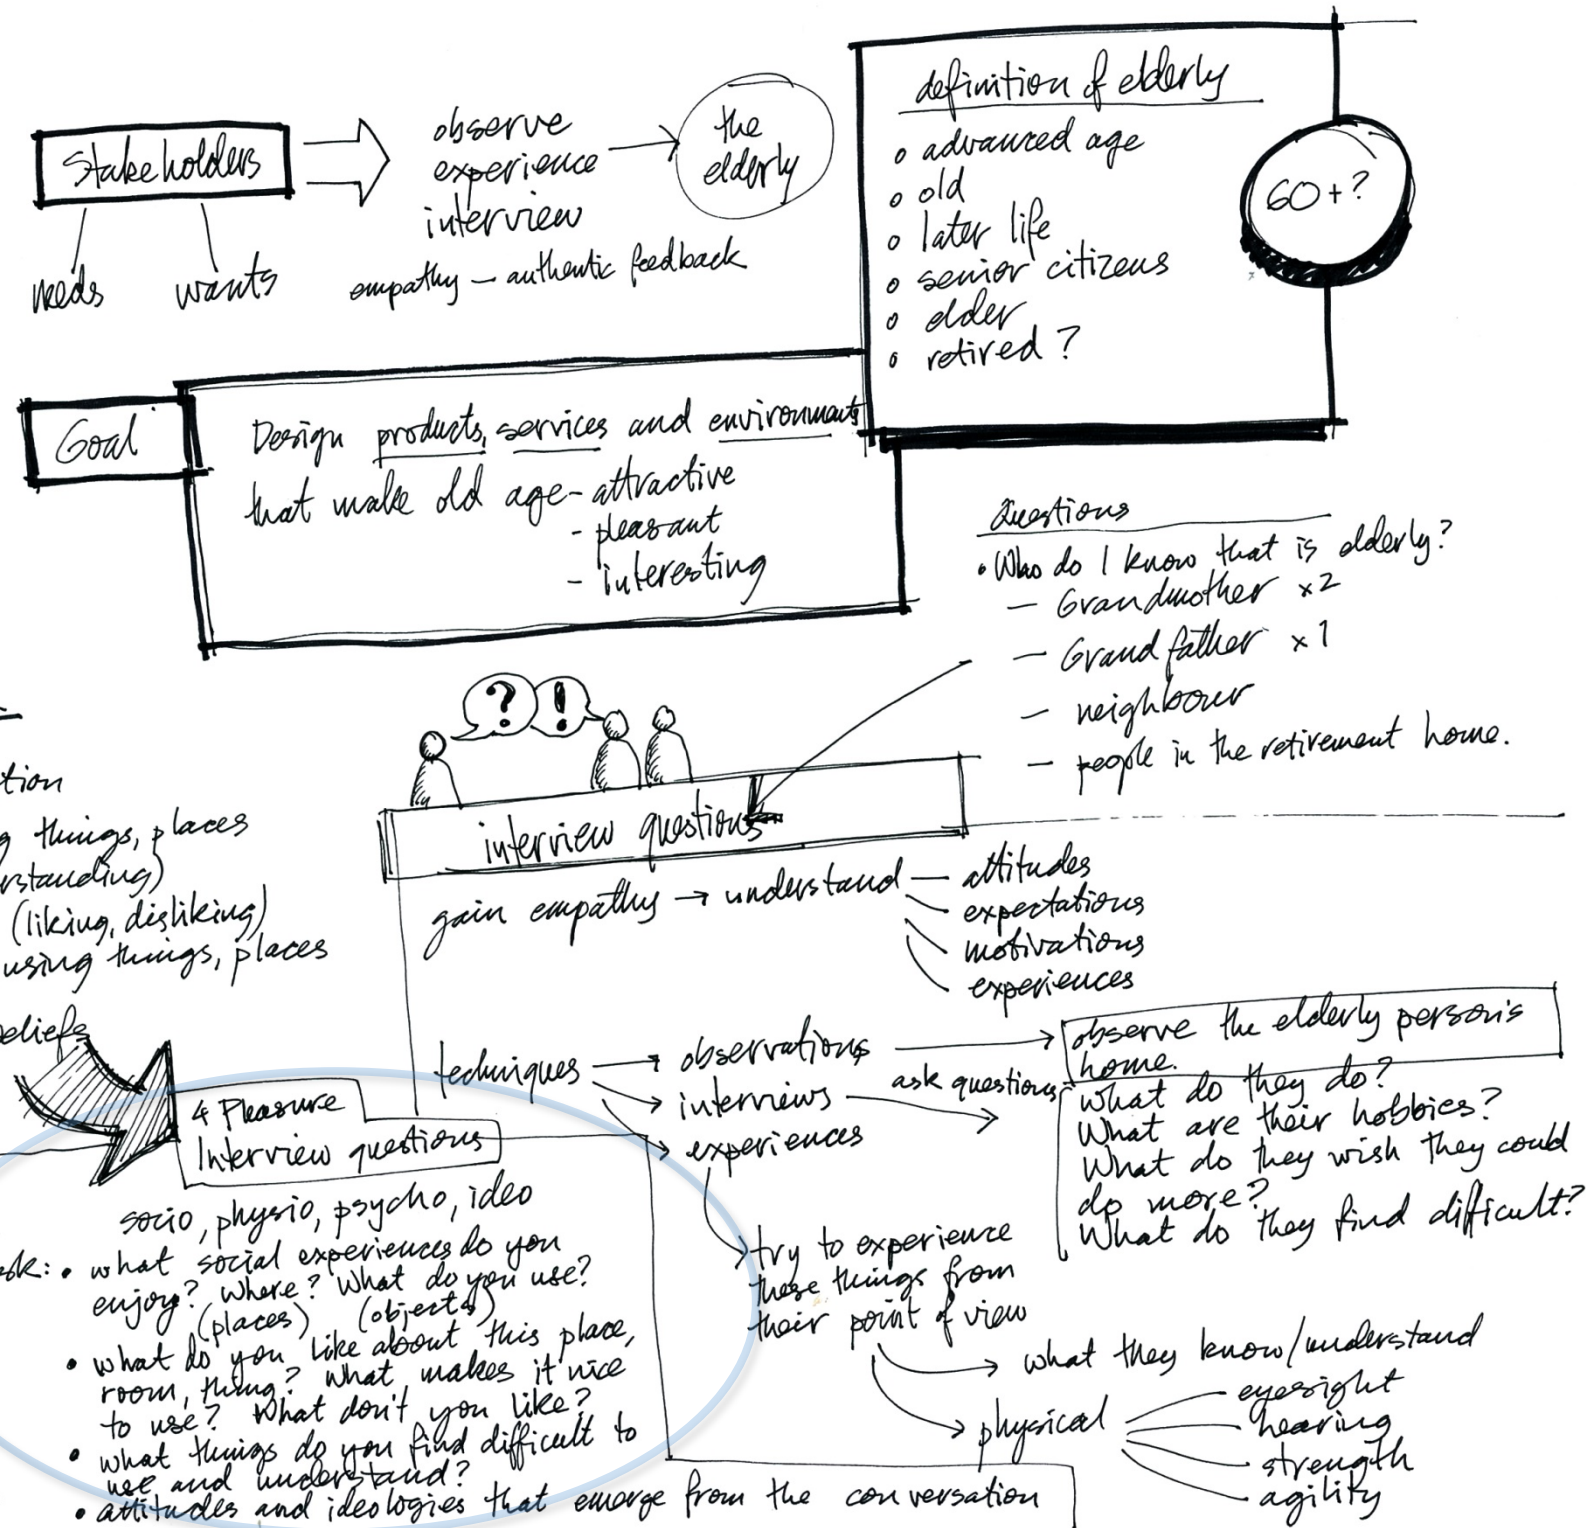 Stakeholders
needs
wants
observe
experience
interview
empathy – authentic feedback
the
elderly
definition of elderly
o advanced age
o old
o later life
o senior citizens
o elder
o retired ?
60+?
Goal
Design products, services and environments
that make old age - attractive
- pleasant
- interesting
Questions
• Who do I know that is elderly?
– Grandmother x2
– Grandfather x1
– neighbour
– people in the retirement home.
? !
interview questions
gain empathy → understand – attitudes
expectations
motivations
experiences
things, places
(liking, disliking)
using things, places
techniques → observations
interviews
experiences
observe the elderly person's
home.
ask questions
What do they do?
What are their hobbies?
What do they wish they could
do more?
What do they find difficult?
try to experience
these things from
their point of view
what they know/understand
physical
eyesight
hearing
strength
agility
4 Pleasure
Interview questions
socio, physio, psycho, ideo
• what social experiences do you
enjoy? Where? What do you use?
(places) (objects)
• what do you like about this place,
room, thing? What makes it nice
to use? What don't you like?
• what things do you find difficult to
use and understand?
• attitudes and ideologies that emerge from the conversation